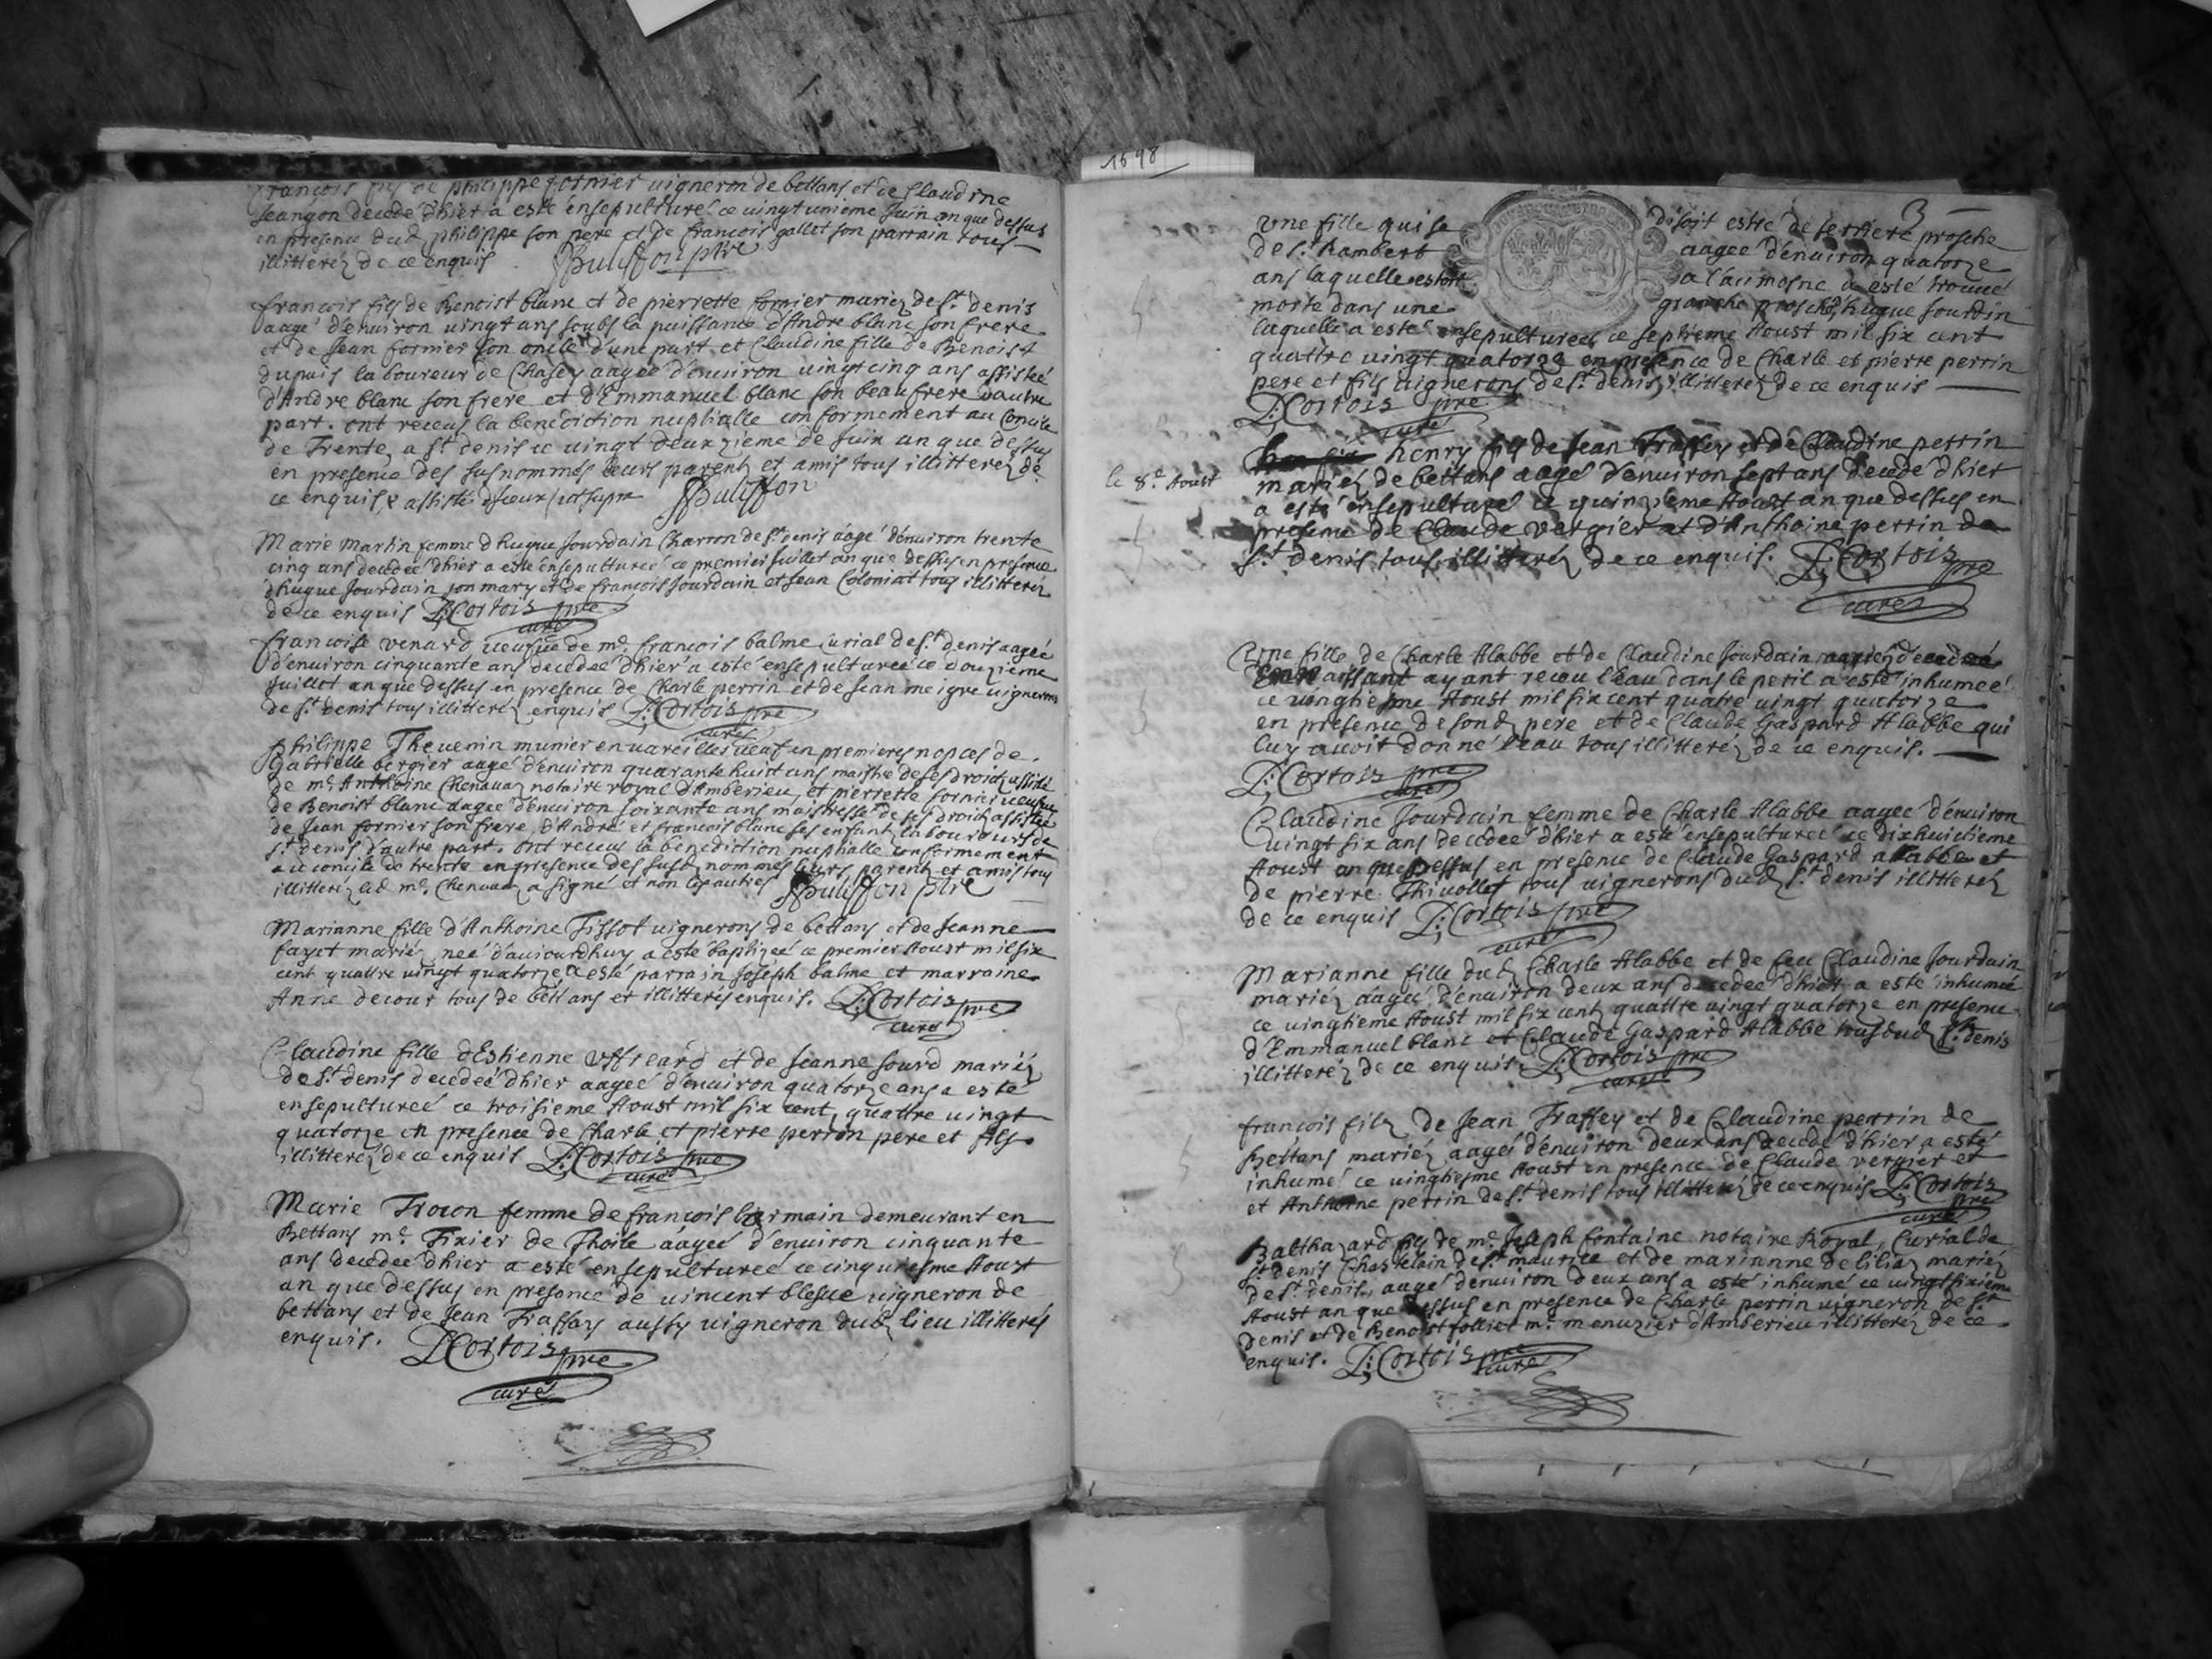 françois fils de philippe fornier uigneron de bettans et de Claudine
Jeançon decedé dhier a esté ensepulturé ce uingt unieme Juin an que dessus
en presence dud philippe son pere et de françois gallet son parrain tous
illitterez de ce enquis
françois fils de Benoist blanc et de pierrette fornier mariez de St denis
aagé d'enuiron uingt ans soubs la puissance d'Andre blanc son frere
et de Jean fornier son oncle d'une part et Claudine fille de Benoist
dupuis laboureur de Chasey aagée d'enuiron uingt cinq ans assistée
d'Andre blanc son frere et d'Emmanuel blanc son beaufrere d'autre
part. ont receus la benediction nuptialle conformement au Concile
de Trente a St denis ce uingt deuxzieme de Juin an que dessus
en presence des susnommés leurs parents et amis tous illitterez de
ce enquis
Marie Martin femme d'hugue Jourdain Charron de St denis aagé d'enuiron trente
cinq ans decedeé dhier a esté ensepultureé ce premier Juillet an que dessus en presence
d'hugue Jourdain son mary et de françois Jourdain et Jean Coloniat tous illitterez
de ce enquis D: Cortois pre
curé
francoise venard ueufue de me françois balme Curial de St denis aagée
d'enuiron cinquante ans decedeé dhier a esté ensepultureé ce douzieme
Juillet an que dessus en presence de Charle perrin et de Jean meigre uignerons
de St denis tous illitterez enquis D: Cortois pre
curé
Philippe Theuenin munier en uareilles ueuf en premieres nopces de
Gabrielle bergier aagé d'enuiron quarante huict ans maistre de ses droicts assisté
de me Anthoine Chenauaz notaire royal d'Amberieu, et pierrette fornier ueufue
de Benoist blanc aagée d'enuiron soixante ans maistresse de ses droicts assistée
de Jean fornier son frere, d'André et francois blanc ses enfants laboureurs de
St denis d'autre part. ont receus la benediction nuptialle conformement
au concile de trente en presence des susd nommés leurs parents et amis tous
illitterez led me Chenauaz a signé et non les autres
Marianne fille d'Anthoine Tissot uignerons de bettans et de Jeanne
fayet mariez, neé d'auiourdhuy a esté baptizeé ce premier Aoust mil six
cent quattre uingt quatorze a esté parrain Joseph balme et marraine
Anne decour tous de bettans et illitterés enquis. D: Cortois pre
curé
Claudine fille d'Estienne Uffreard et de Jeanne Sourd mariez
de St denis decedeé dhier aageé d'enuiron quatorze ans a esté
ensepultureé ce troisieme Aoust mil six cent, quattre uingt
quatorze en presence de Charle et pierre perrin pere et fils
illitterez de ce enquis D: Cortois pre
curé
Marie Trocon femme de françois germain demeurant en
Bettans me Tixier de Thoile aageé d'enuiron cinquante
ans decedeé dhier a esté ensepultureé ce cinquiesme Aoust
an que dessus en presence de uincent blesue uigneron de
bettans et de Jean Traffay aussy uigneron dud lieu illitterés
enquis. D: Cortois pre
curé
1698
3
Une fille qui se disoit estre de serriere prosche
de St Rambert aagée d'enuiron quatorze
ans laquelle estoit a l'aumosne a esté trouueé
morte dans une granche prosche hugue Jourdin
laquelle a esté ensepultureé ce septieme Aoust mil six cent
quattre uingt quatorze en presence de Charle et pierre perrin
pere et fils uignerons de St denis, illitterez de ce enquis
D: Cortois pre
curé
le 8e Aoust
henry fils de Jean Traffey et de Claudine perrin
mariez de bettans aagé d'enuiron sept ans decedé dhier
a esté ensepulturé ce quinzieme Aoust an que dessus en
presence de Claude vergier et d'Anthoine perrin de
St denis tous illitterez de ce enquis. D: Cortois pre
curé
Une fille de Charle Alabbe et de Claudine Jourdain mariez decedeé
En naissant ayant receu l'eau dans le peril a esté inhumeé
ce uingtiesme Aoust mil six cent quatre uingt quatorze
en presence de sond pere et de Claude Gaspard Alabbe qui
luy auoit donné l'eau tous illitterez de ce enquis.
D: Cortois pre
curé
Claudine Jourdain femme de Charle Alabbe aageé d'enuiron
uingt six ans decedeé dhier a esté ensepultureé ce dixhuictieme
Aoust an que dessus en presence de Claude Gaspard alabbe et
de pierre Thiuollet tous uignerons dud St denis illitterez
de ce enquis D: Cortois pre
curé
Marianne fille dud Charle Alabbe et de feu Claudine Jourdain
mariez aageé d'enuiron deux ans decedeé dhier a esté inhumeé
ce uingtieme Aoust mil six cent quattre uingt quatorze en presence
d'Emmanuel blanc et Claude Gaspard Alabbe tous dud St denis
illitterez de ce enquis D: Cortois pre
curé
francois filz de Jean Traffey et de Claudine perrin de
Bettans mariez aagé d'enuiron deux ans decedé dhier a esté
inhumé ce uingtiesme Aoust en presence de Claude vergier et
et Anthoine perrin de St denis tous illitterez de ce enquis D: Cortois
pre
curé
Balthazard fils de me Joseph fontaine notaire Royal, Curial de
St denis Chastelain de St maurice et de marianne de liliaz mariez
de St denis, aagé d'enuiron deux ans a esté inhumé ce uingt sixieme
Aoust an que dessus en presence de Charle perrin uigneron de St
denis et de Benoist folliet me menuzier d'Amberieu illitterez de ce
enquis. D: Cortois pre
curé